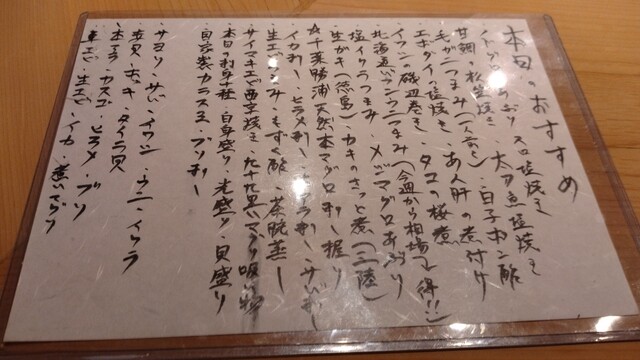 本日のおすすめ
塩焼き・太刀魚塩焼き
甘鯛の松笠焼き・白子ポン酢
毛がにつまみ(一人前)・あん肝の煮付け
エボダイの塩焼き・タコの桜煮
イワシの磯辺巻き
北海道バフンウニつまみ(今週から相場↓得!!)
塩イクラつまみ・メジマグロあぶり
生がき(徳島)・カキのさっと煮(三陸)
☆千葉勝浦天然本マグロ刺し・握り
イカ刺し・ヒラメ刺し・刺し・サバ刺し
生エビつまみ・もずく酢・茶碗蒸し
サイマキエビ西京焼き・九十九里ハマグリ吸い物
本日の刺身種・白身盛り・光盛り・貝盛り
自家製カラスミ・ブリ刺し
・サヨリ・サバ・イワシ・ウニ・イクラ
・赤貝・ホッキ・タイラ貝
・本マグロ・カスゴ・ヒラメ・ブリ
・車エビ・生エビ・イカ・煮ハマグリ